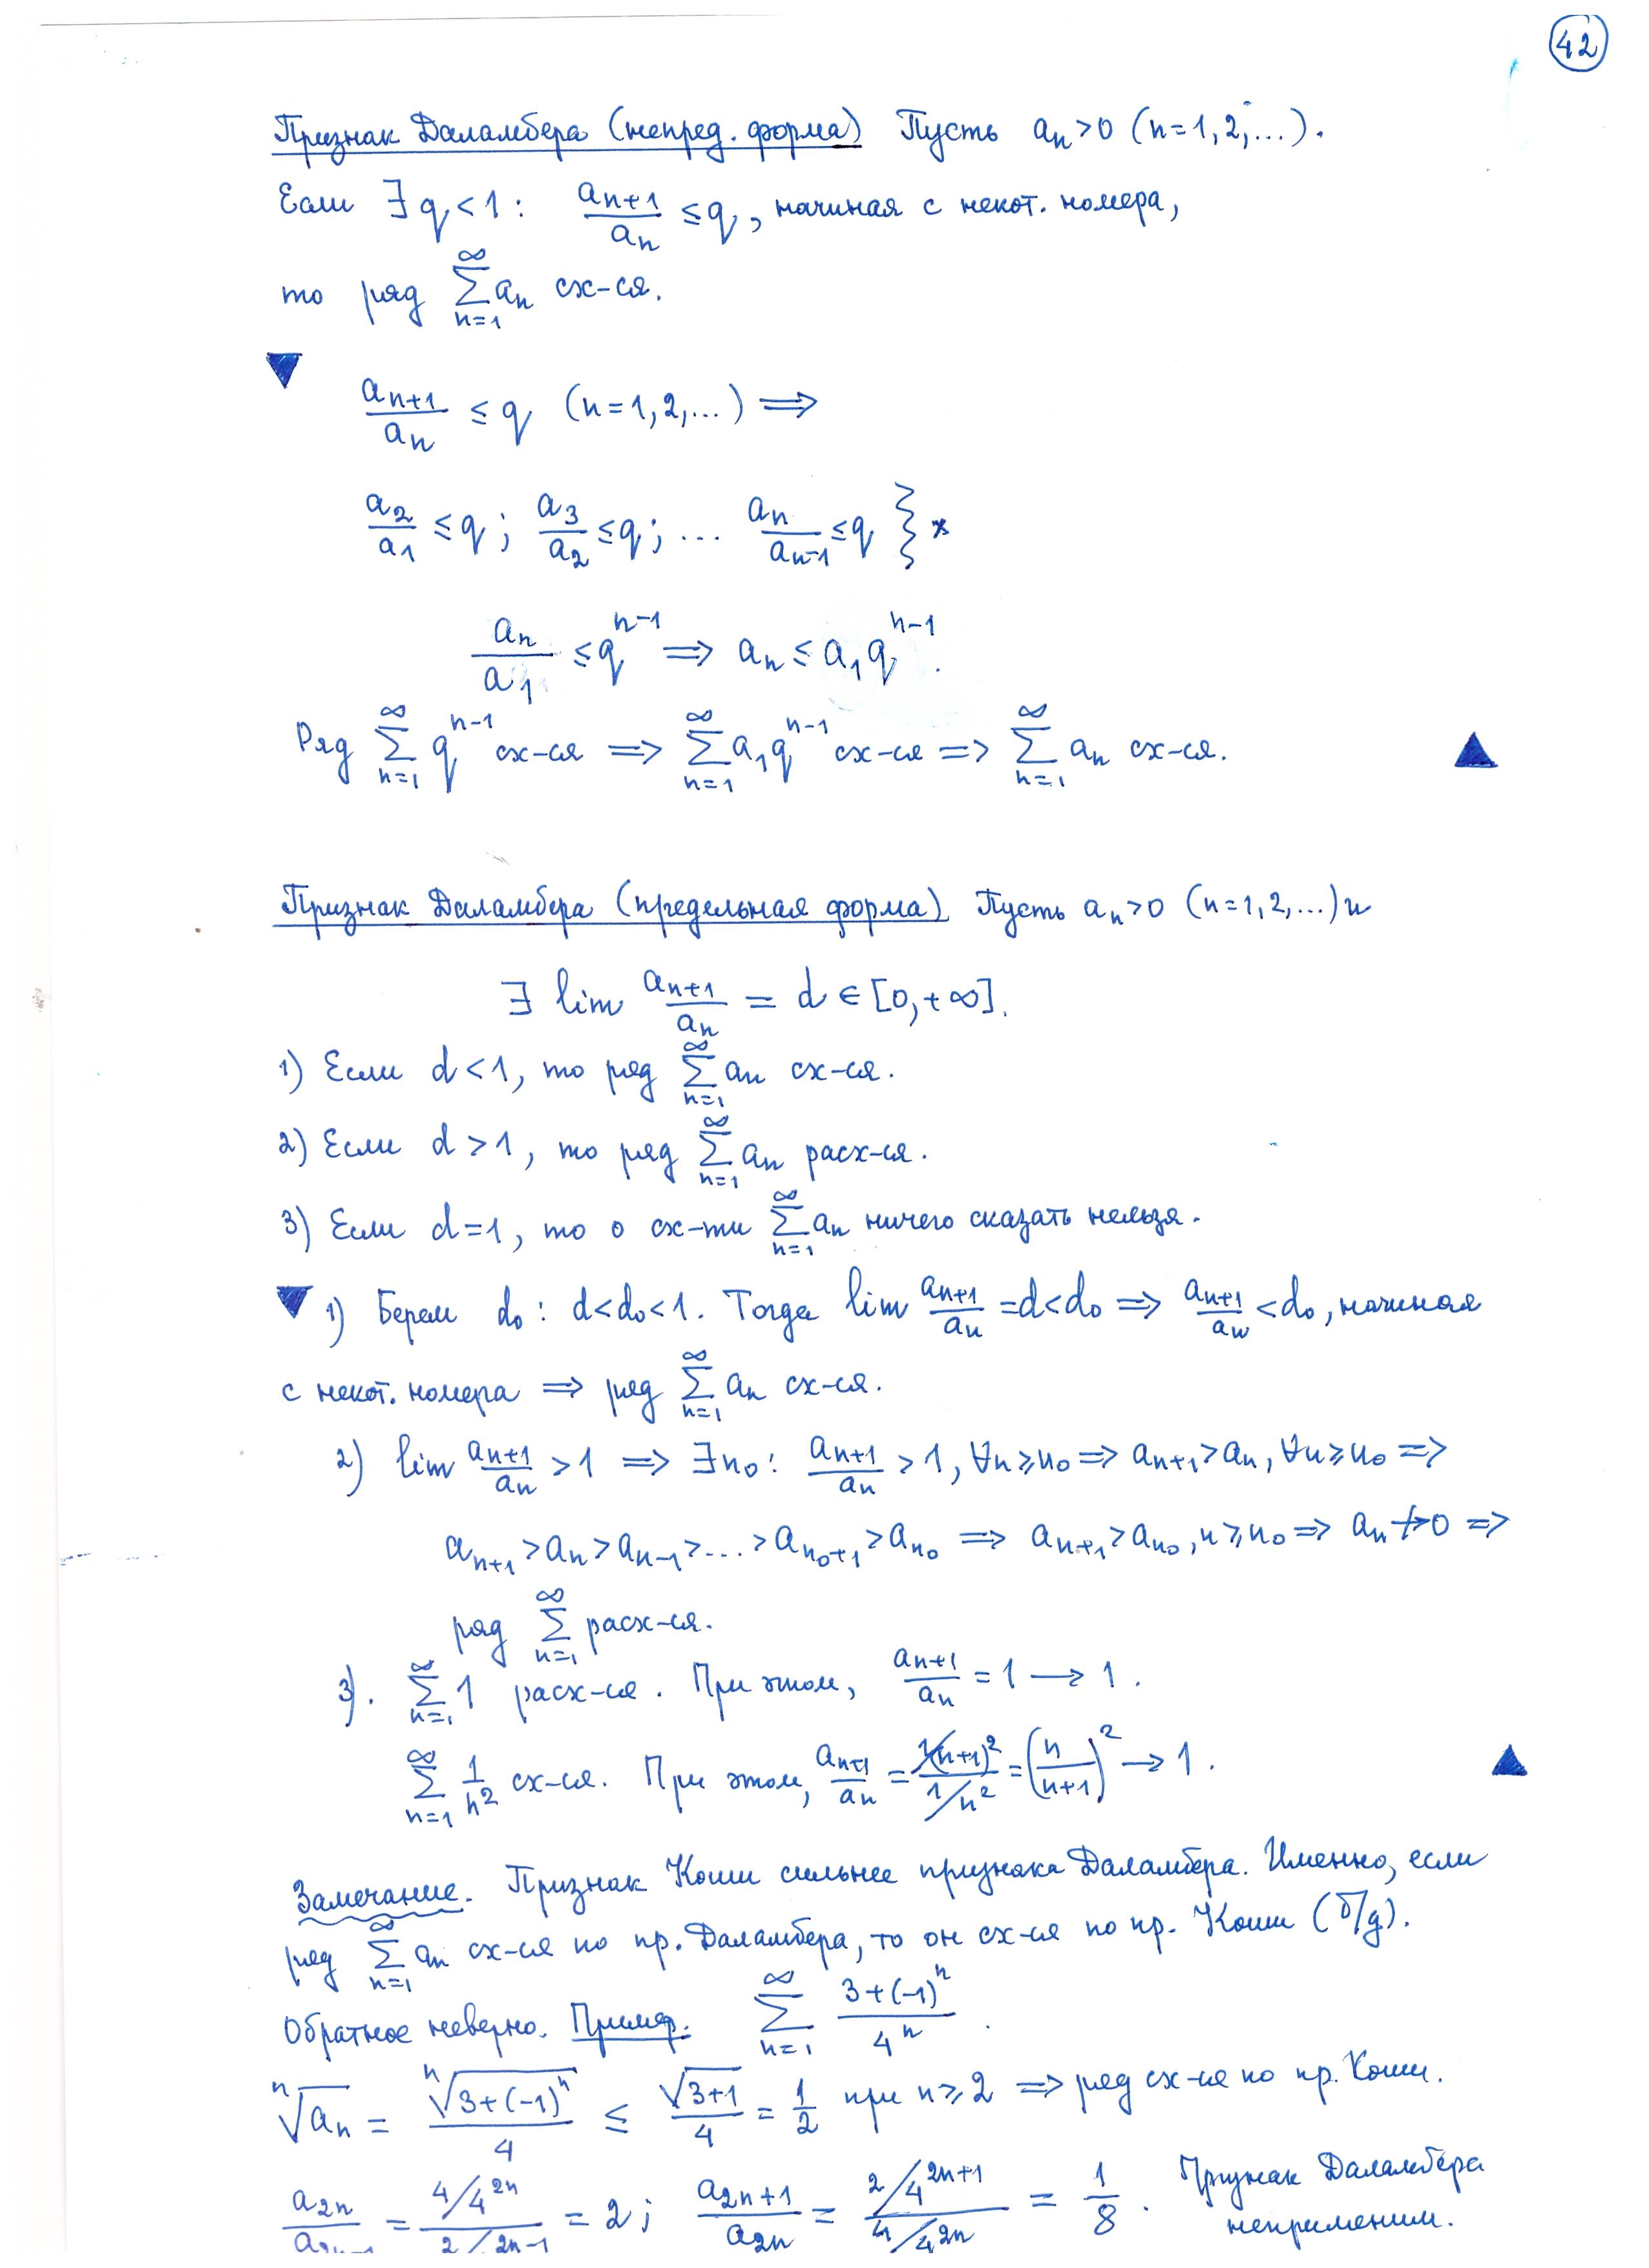 42
Признак Даламбера (непред. форма) Пусть aₙ>0 (n=1,2,...).
Если ∃ q<1: aₙ₊₁/aₙ ≤ q, начиная с некот. номера,
то ряд ∑_{n=1}^{∞} aₙ сх-ся.
▼
aₙ₊₁/aₙ ≤ q (n=1,2,...) ⟹
a₂/a₁ ≤ q; a₃/a₂ ≤ q; ... aₙ/aₙ₋₁ ≤ q } *
aₙ/a₁ ≤ q^{n-1} ⟹ aₙ ≤ a₁q^{n-1}.
Ряд ∑_{n=1}^{∞} q^{n-1} сх-ся ⟹ ∑_{n=1}^{∞} a₁q^{n-1} сх-ся ⟹ ∑_{n=1}^{∞} aₙ сх-ся. ▲
Признак Даламбера (предельная форма) Пусть aₙ>0 (n=1,2,...) и
∃ lim aₙ₊₁/aₙ = d ∈ [0,+∞].
1) Если d<1, то ряд ∑_{n=1}^{∞} aₙ сх-ся.
2) Если d>1, то ряд ∑_{n=1}^{∞} aₙ расх-ся.
3) Если d=1, то о сх-ти ∑_{n=1}^{∞} aₙ ничего сказать нельзя.
▼ 1) Берем d₀: d<d₀<1. Тогда lim aₙ₊₁/aₙ = d<d₀ ⟹ aₙ₊₁/aₙ < d₀, начиная
с некот. номера ⟹ ряд ∑_{n=1}^{∞} aₙ сх-ся.
2) lim aₙ₊₁/aₙ > 1 ⟹ ∃n₀: aₙ₊₁/aₙ > 1, ∀n≥n₀ ⟹ aₙ₊₁>aₙ, ∀n≥n₀ ⟹
aₙ₊₁>aₙ>aₙ₋₁>...>a_{n₀+1}>a_{n₀} ⟹ aₙ₊₁>a_{n₀}, n≥n₀ ⟹ aₙ↛0 ⟹
ряд ∑_{n=1}^{∞} расх-ся.
3). ∑_{n=1}^{∞} 1 расх-ся. При этом, aₙ₊₁/aₙ = 1 → 1.
∑_{n=1}^{∞} 1/n² сх-ся. При этом, aₙ₊₁/aₙ = (1/(n+1)²)/(1/n²) = (n/(n+1))² → 1. ▲
Замечание. Признак Коши сильнее признака Даламбера. Именно, если
ряд ∑_{n=1}^{∞} aₙ сх-ся по пр. Даламбера, то он сх-ся по пр. Коши (б/д).
Обратное неверно. Пример. ∑_{n=1}^{∞} (3+(-1)ⁿ)/4ⁿ.
ⁿ√aₙ = ⁿ√(3+(-1)ⁿ)/4 ≤ √(3+1)/4 = 1/2 при n≥2 ⟹ ряд сх-ся по пр. Коши.
a₂ₙ/a₂ₙ₋₁ = (4/4^{2n})/(2/4^{2n-1}) = 2; a₂ₙ₊₁/a₂ₙ = (2/4^{2n+1})/(4/4^{2n}) = 1/8. Признак Даламбера
неприменим.